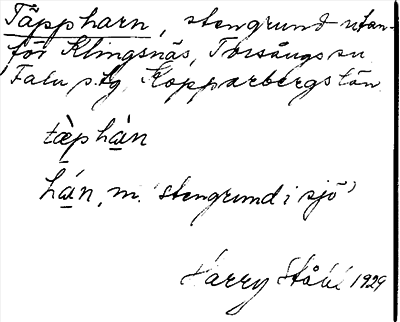 Täppharn, stengrund utan-
för Klingsnäs, Torsångs sn
Falu stg Kopparbergs län
tæ̀phàn
hán, m. 'stengrund i sjö'
Harry Ståhl 1929